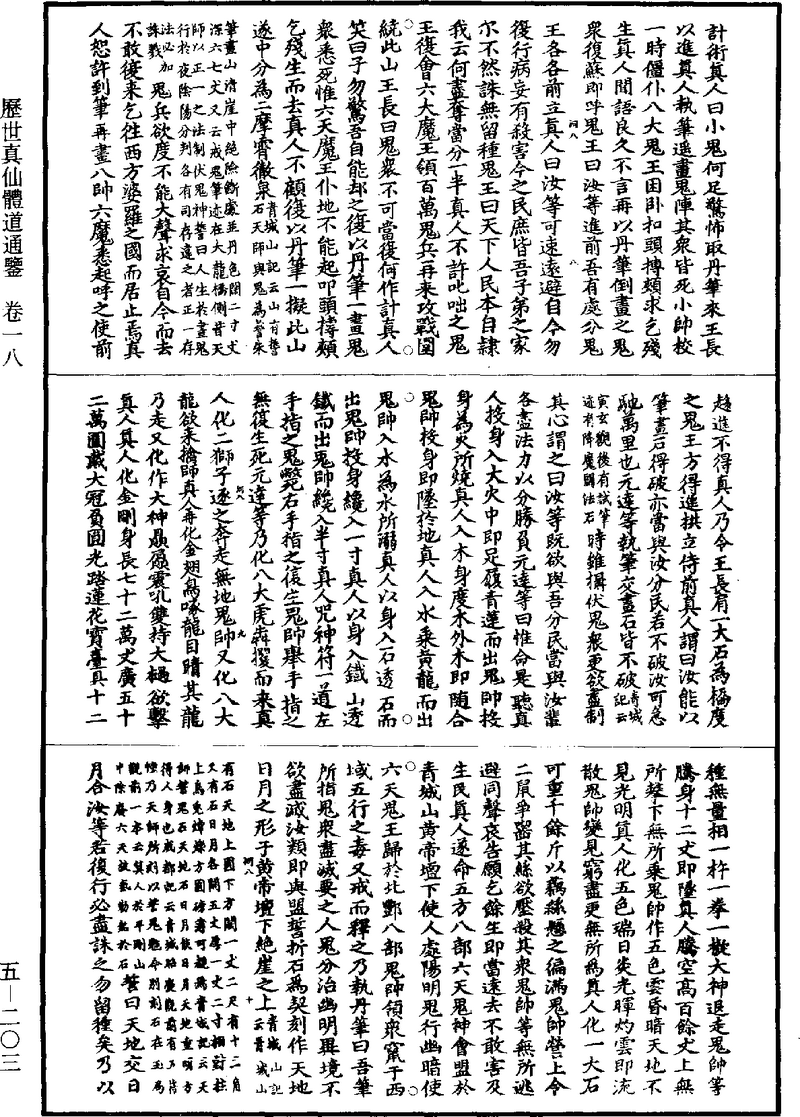 歷世真仙體道通鑑　卷一八
五—二〇三
計術真人曰小鬼何足驚怖取丹筆來王長
以進真人執筆遙畫鬼陣其衆皆死小帥校
一時僵仆八大鬼王困卧扣頭搏頰求乞殘
生真人閒語良久不言再以丹筆倒畫之鬼
衆復蘇即呼鬼王曰汝等進前吾有處分鬼
王各各前立真人曰汝等可速遠避自今勿
復行病妄有殺害今之民庶皆吾子弟之家
尔不然誅無留種鬼王曰天下人民本自隸
我云何盡奪當分一半真人不許叱咄之鬼
王復會六大魔王領百萬鬼兵再來攻戰圍
繞此山王長曰鬼衆不可當復何作計真人
笑曰子勿驚吾自能却之復以丹筆一畫鬼
衆悉死惟六天魔王仆地不能起叩頭搏頰
乞殘生而去真人不顧復以丹筆一擬此山
遂中分為二摩霄徹泉青城山記云山有誓石天師與鬼為誓朱
筆畫山清崖中絶險斷處並丹色闊二寸丈
深六七丈又云戒鬼筆迹在大龍橋側昔天
師以正一之法制伏鬼神誓曰人生於晝鬼
行於夜陰陽分判各有司存違之者正一存
法必加誅戮鬼兵欲度不能大聲求哀自今而去
不敢復來乞往西方婆羅之國而居止焉真
人恕許到筆再畫八帥六魔悉起呼之使前
趍進不得真人乃令王長肩一大石為橋度
之鬼王方得進拱立侍前真人謂曰汝能以
筆畫石得破亦當與汝分民若不破汝可急
馳萬里也元達等執筆交畫石皆不破青城記云
寅玄觀後有試筆迹有降魔闢法石時雖攝伏鬼衆更欲盡制
其心謂之曰汝等既欲與吾分民當與汝輩
各盡法力以分勝負元達等曰惟命是聽真
人投身入大火中即足履青蓮而出鬼帥投
身為火所燒真人入木身度木外木即隨合
鬼帥投身即墜於地真人入水乘黃龍而出
鬼帥入水為水所溺真人以身入石透石而
出鬼帥投身纔入一寸真人以身入鐵山透
鐵而出鬼帥纔入半寸真人咒神符一道左
手指之鬼斃右手指之復生鬼帥舉手指之
無復生死元達等乃化八大虎奔攫而來真
人化二獅子逐之奔走無地鬼帥又化八大
龍欲來擒師真人再化金翅鳥啄龍目睛其龍
乃走又化作大神贔屭震吼雙持大槌欲擊
真人真人化金剛身長七十二萬丈廣五十
二萬圍戴大冠負圓光踏蓮花寶臺具十二
種無量相一杵一拳一撒大神退走鬼帥等
騰身十二丈即墜真人騰空高百餘丈上無
所攀下無所乘鬼帥作五色雲昏暗天地不
見光明真人化五色瑞日炎光暉灼雲即流
散鬼帥變見窮盡更無所為真人化一大石
可重千餘斤以藕絲懸之徧滿鬼帥營上令
二鼠爭齧其絲欲壓殺其衆鬼帥等無所逃
避同聲哀告願乞餘生即當遠去不敢害及
生民真人遂命五方八部六天鬼神會盟於
青城山黃帝壇下使人處陽明鬼行幽暗使
六天鬼王歸於北酆八部鬼帥領衆竄于西
域五行之毒又戒而釋之乃執丹筆曰吾筆
所指鬼衆盡滅要之人鬼分治幽明異境不
欲盡滅汝類即與盟誓折石為契刻作天地
日月之形于黃帝壇下絶崖之上青城山記云晋城山
有石天地上圓下方闊一丈二尺有十二角
又有石日月各闊五丈厚一丈二寸相對柱
上烏兔煒燦方圓磅礴可觀青城記云天
師誓鬼石天地石日月誓曰日月天地重明方
得人身也成都記云青城
誓曰天地交日
月合汝等若復行必盡誅之勿留種矣乃以